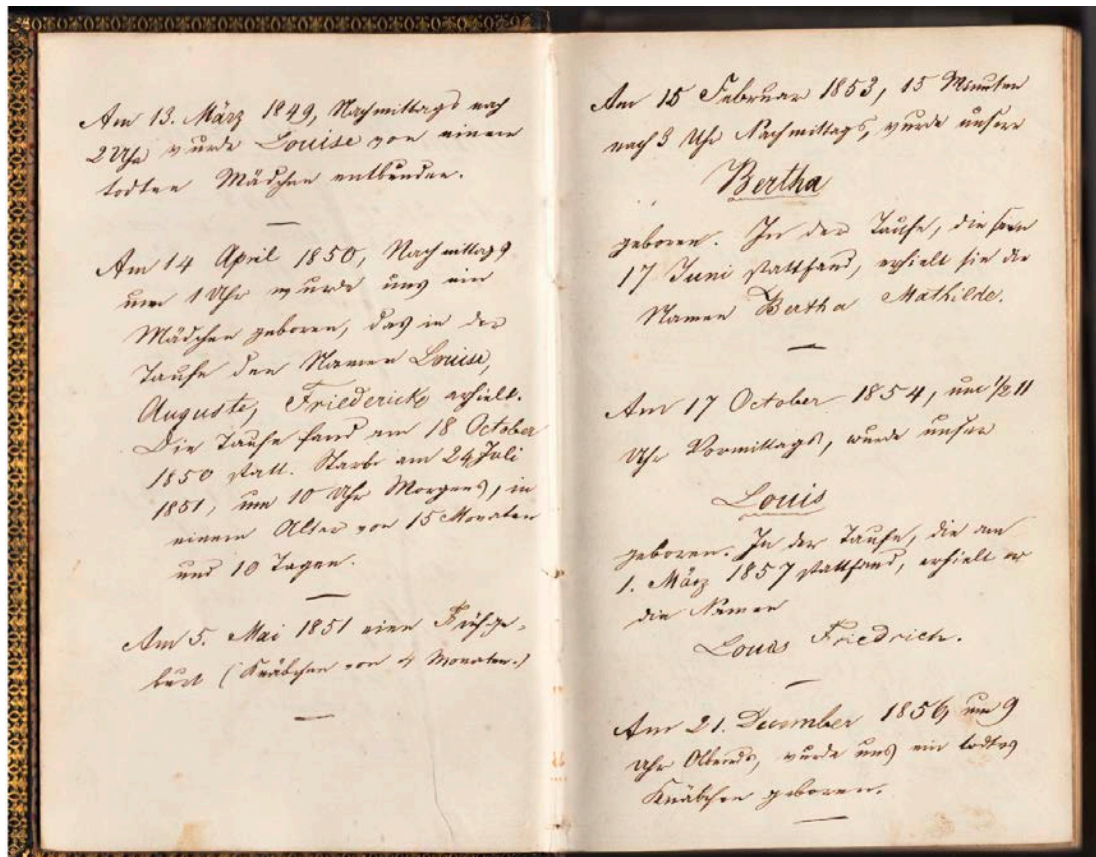 Am 13. März 1849, Nachmittags nach
2 Uhr wurde Louise von einem
todten Mädchen entbunden.
Am 14 April 1850, Nachmittags
um 1 Uhr wurde uns ein
Mädchen geboren, das in der
Taufe den Namen Louise,
Auguste, Friedericke erhielt.
Die Taufe fand am 18 October
1850 statt. Starb am 24 Juli
1851, um 10 Uhr Morgens, in
einem Alter von 15 Monaten
und 10 Tagen.
Am 5. Mai 1851 eine Frühge-
burt (Knäbchen von 4 Monaten.)
Am 15 Februar 1853, 15 Minuten
nach 3 Uhr Nachmittags, wurde unsere
Bertha
geboren. In der Taufe, die
17 Juni stattfand, erhielt sie die
Namen Bertha Mathilde.
Am 17 October 1854, um 1/2 11
Uhr Vormittags, wurde unser
Louis
geboren. In der Taufe, die am
1. März 1857 stattfand, erhielt er
die Namen
Louis Friedrich.
Am 21. December 1856, um 9
Uhr Abends, wurde uns ein todtes
Knäbchen geboren.